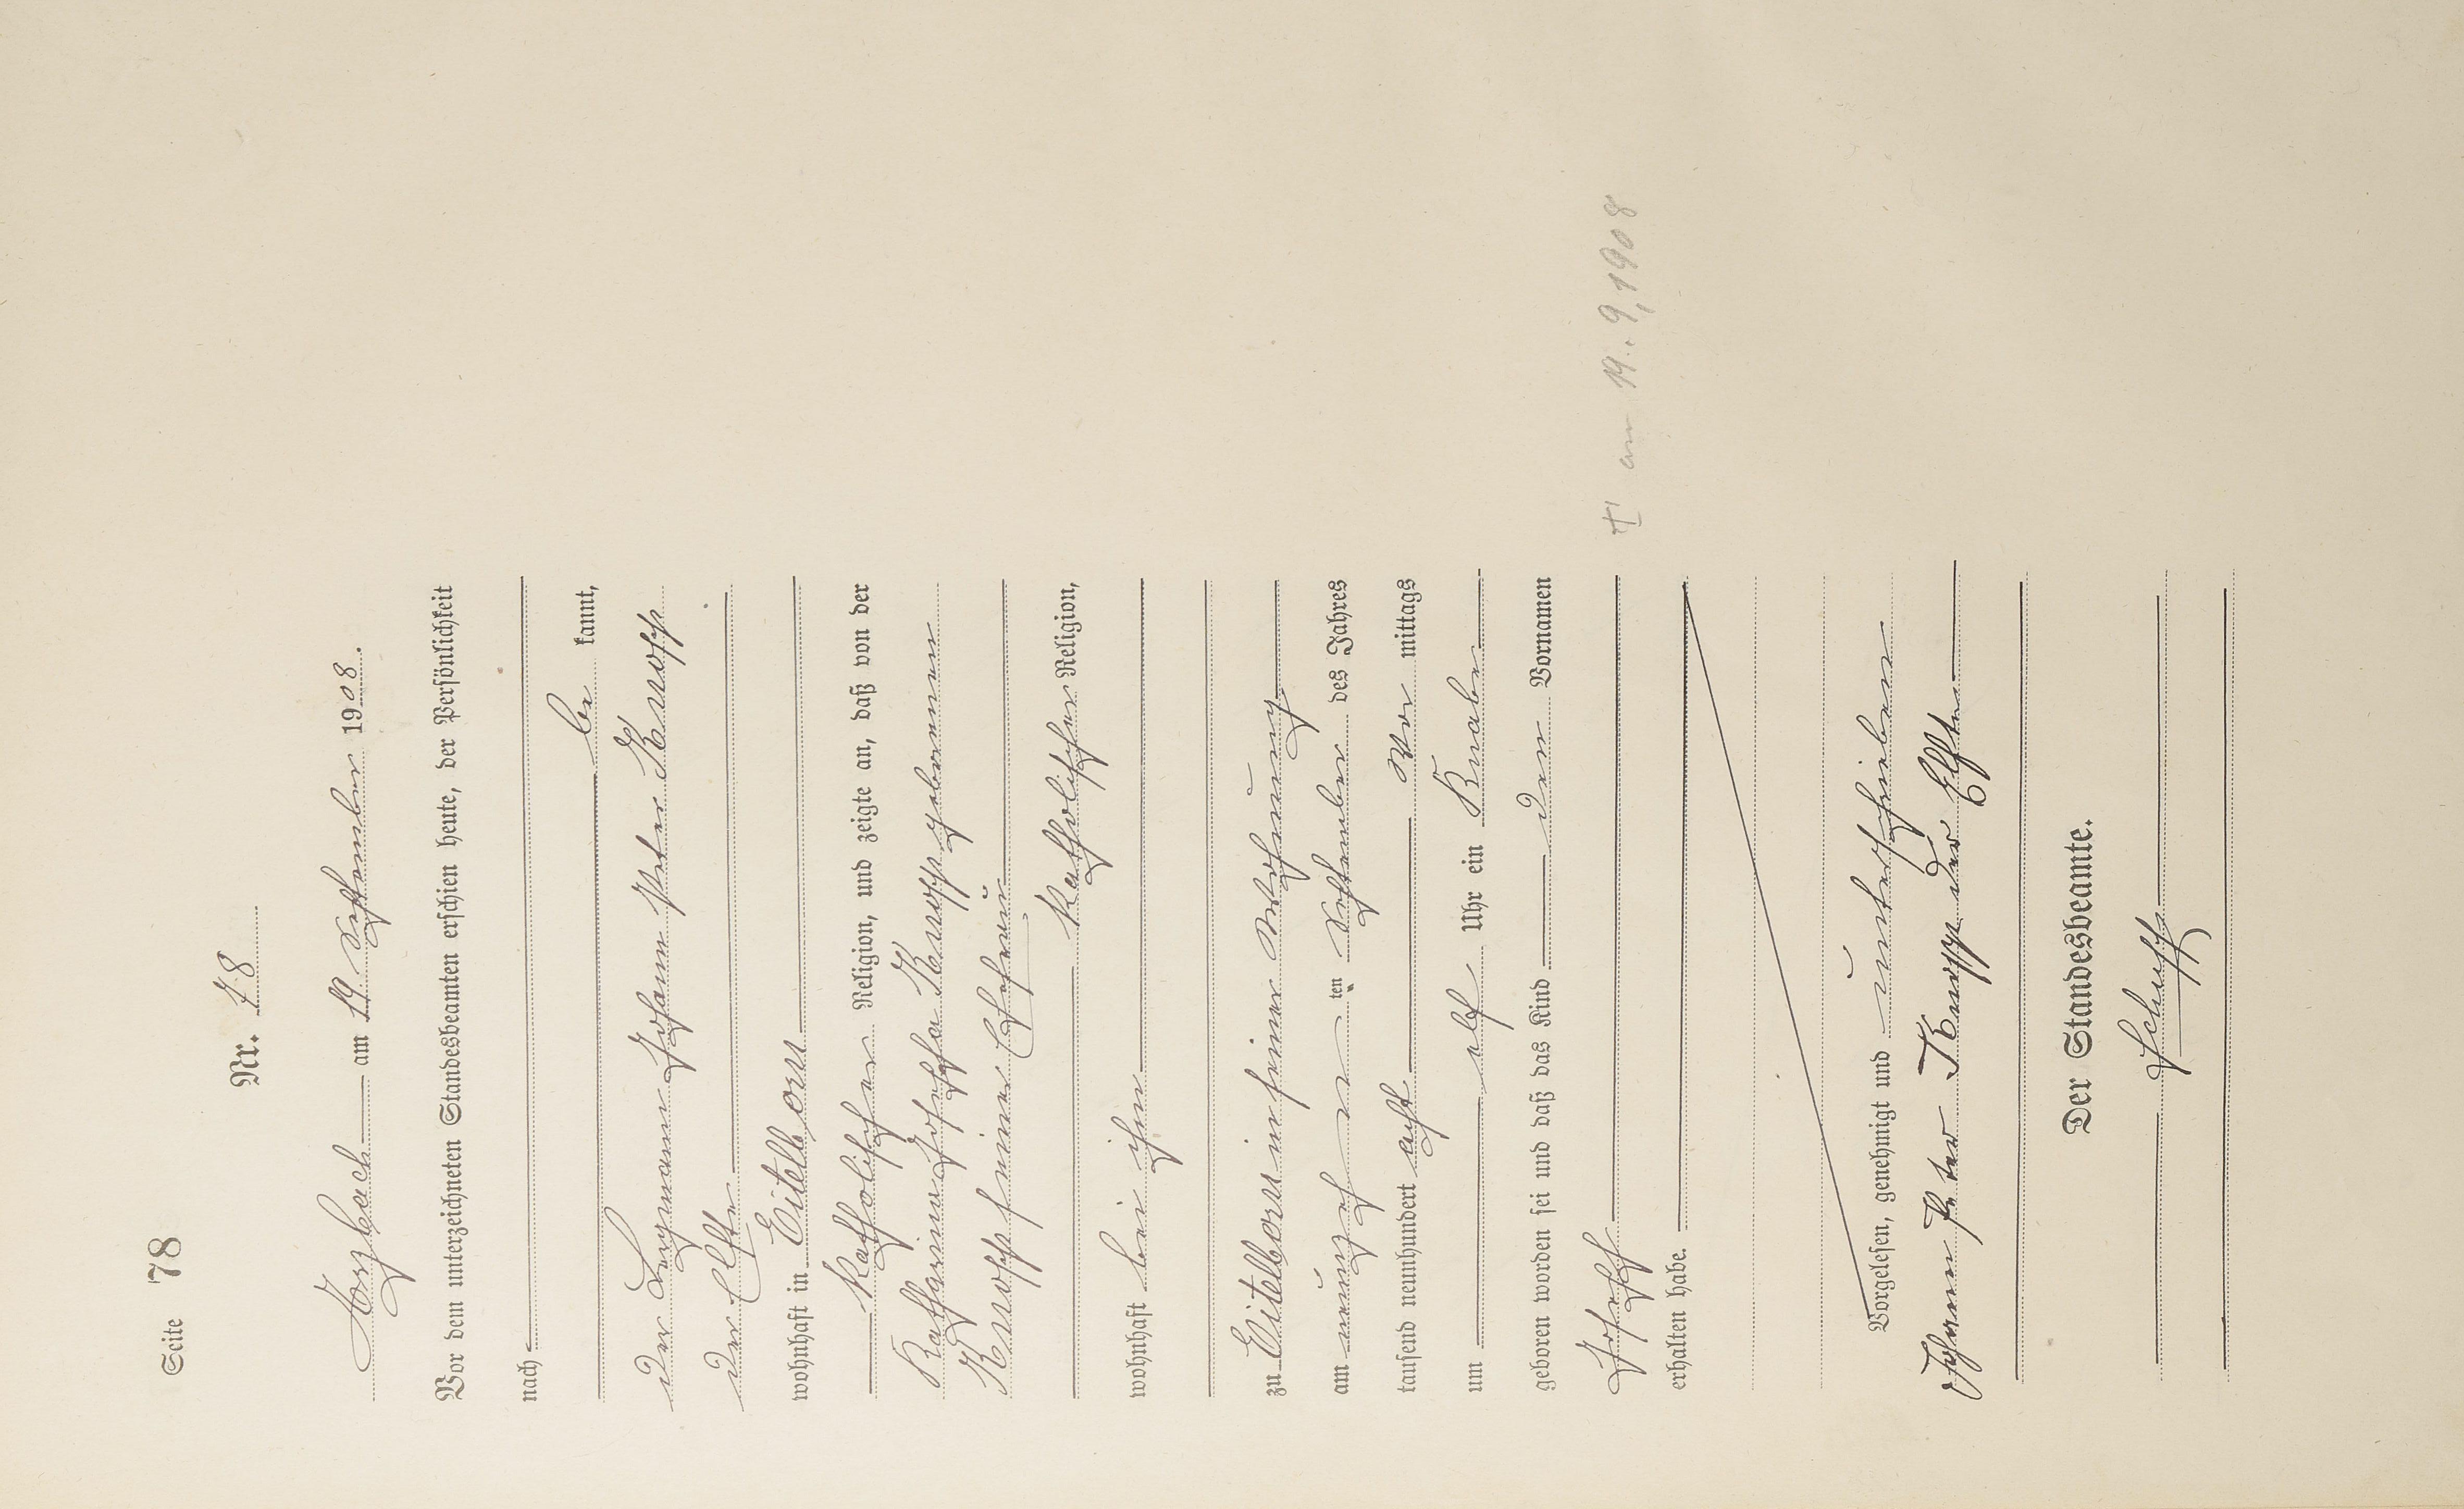 Seite 78
Nr. 78
Arzbach am 19. September 1908.
Vor dem unterzeichneten Standesbeamten erschien heute, der Persönlichkeit
nach
be kannt,
der Bergmann Johann Peter Knopp
der Elfte
wohnhaft in Eitelborn
katholischer Religion, und zeigte an, daß von der
Katharina Josepha Knopp geborenen
Knopp seiner Ehefrau
katholischer Religion,
wohnhaft bei ihm
zu Eitelborn in seiner Wohnung
am neunzehnten September des Jahres
tausend neunhundert acht Vor mittags
um elf Uhr ein Knabe
geboren worden sei und daß das Kind den Vornamen
Joseph
† am 19.9.1908
erhalten habe.
Vorgelesen, genehmigt und unterschrieben
Johann Peter Knopp der Elfte
Der Standesbeamte.
Schupp